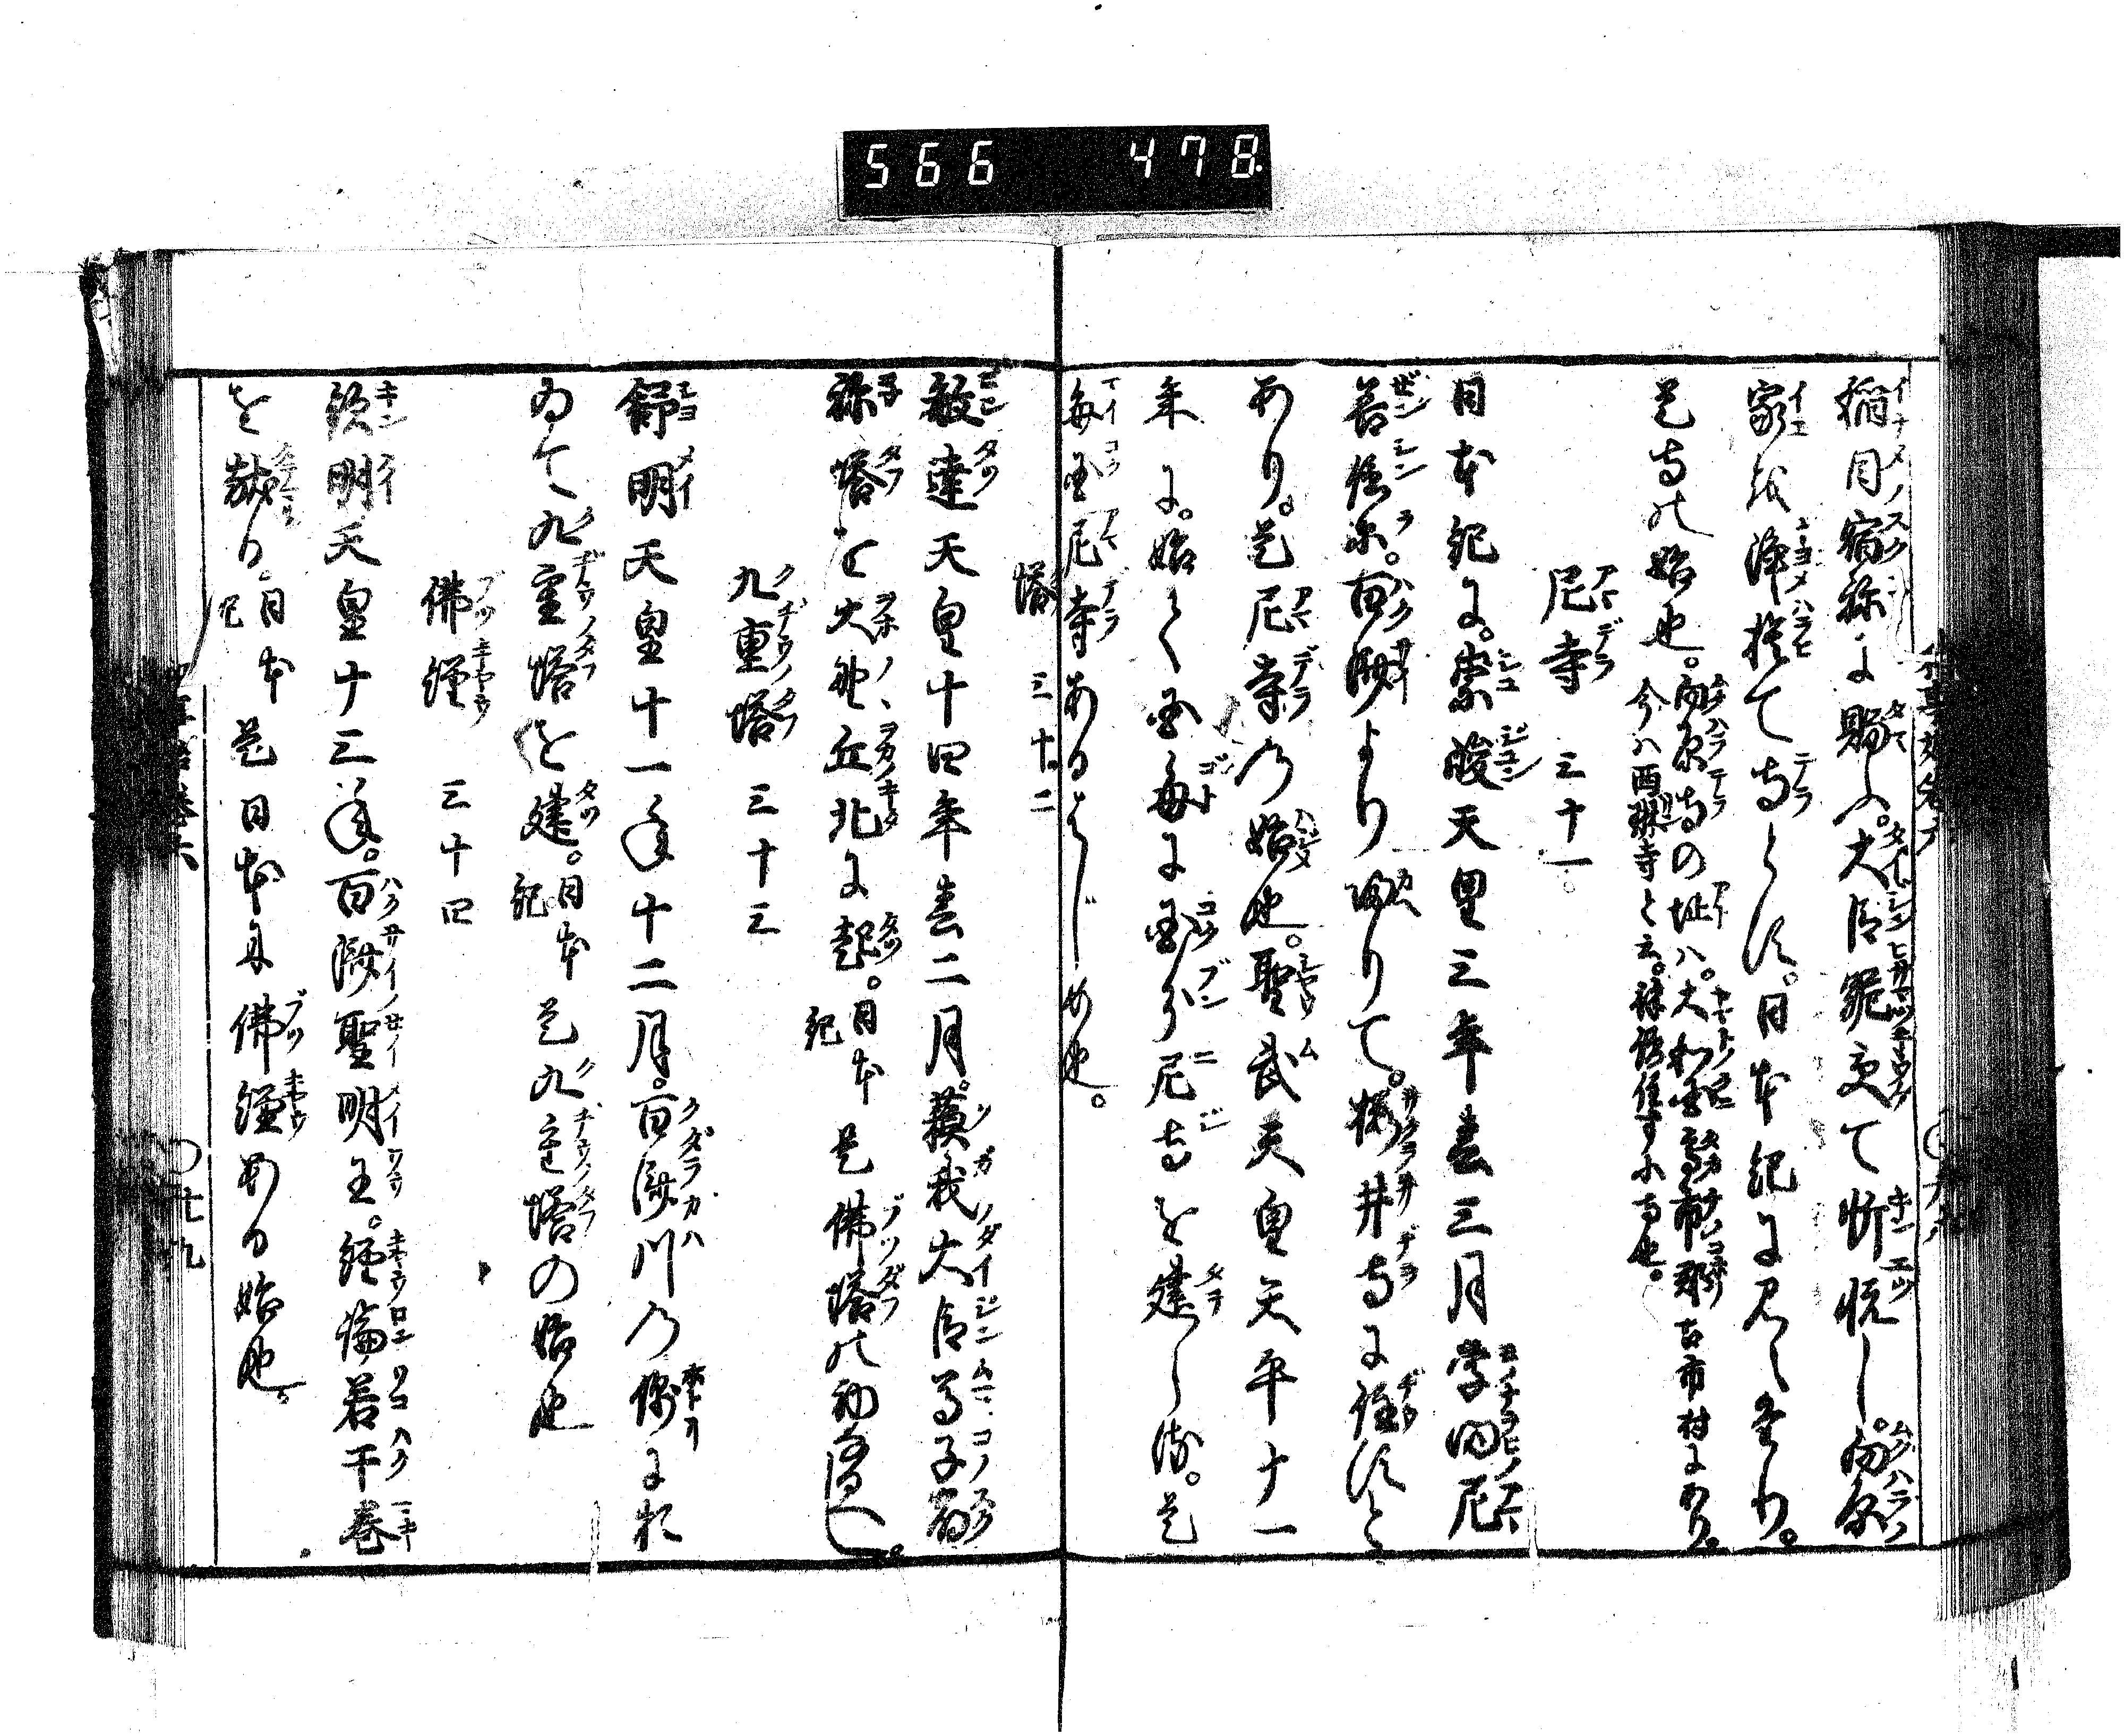 566 478
稲目宿祢に賜ふ。大臣跪受て忻悦し。向原
家を浄捨て寺とす。日本紀に見へたり。
是寺の始也。向原寺の址ハ。大和国高市郡古市村にあり。
今ハ西琳寺と云。
尼寺 三十一。
日本紀に。崇峻天皇三年春三月学問尼
善信等。百済より帰りて。桜井寺に住すと
あり。是尼寺の始也。聖武天皇天平十一
年に。始て国毎に国分尼寺を建らる。是
毎国尼寺あるはじめ也。
塔 三十二
敏達天皇十四年春二月。蘇我大臣馬子宿
祢塔を大野丘北に起。日本紀 是佛塔の初
九重塔 三十三
舒明天皇十一年十二月。百済川の側にお
ゐて九重塔を建。日本紀 是九重塔の始也
佛經 三十四
欽明天皇十三年。百済聖明王。經論若干巻
を献る。日本紀 是日本に佛經ある始也